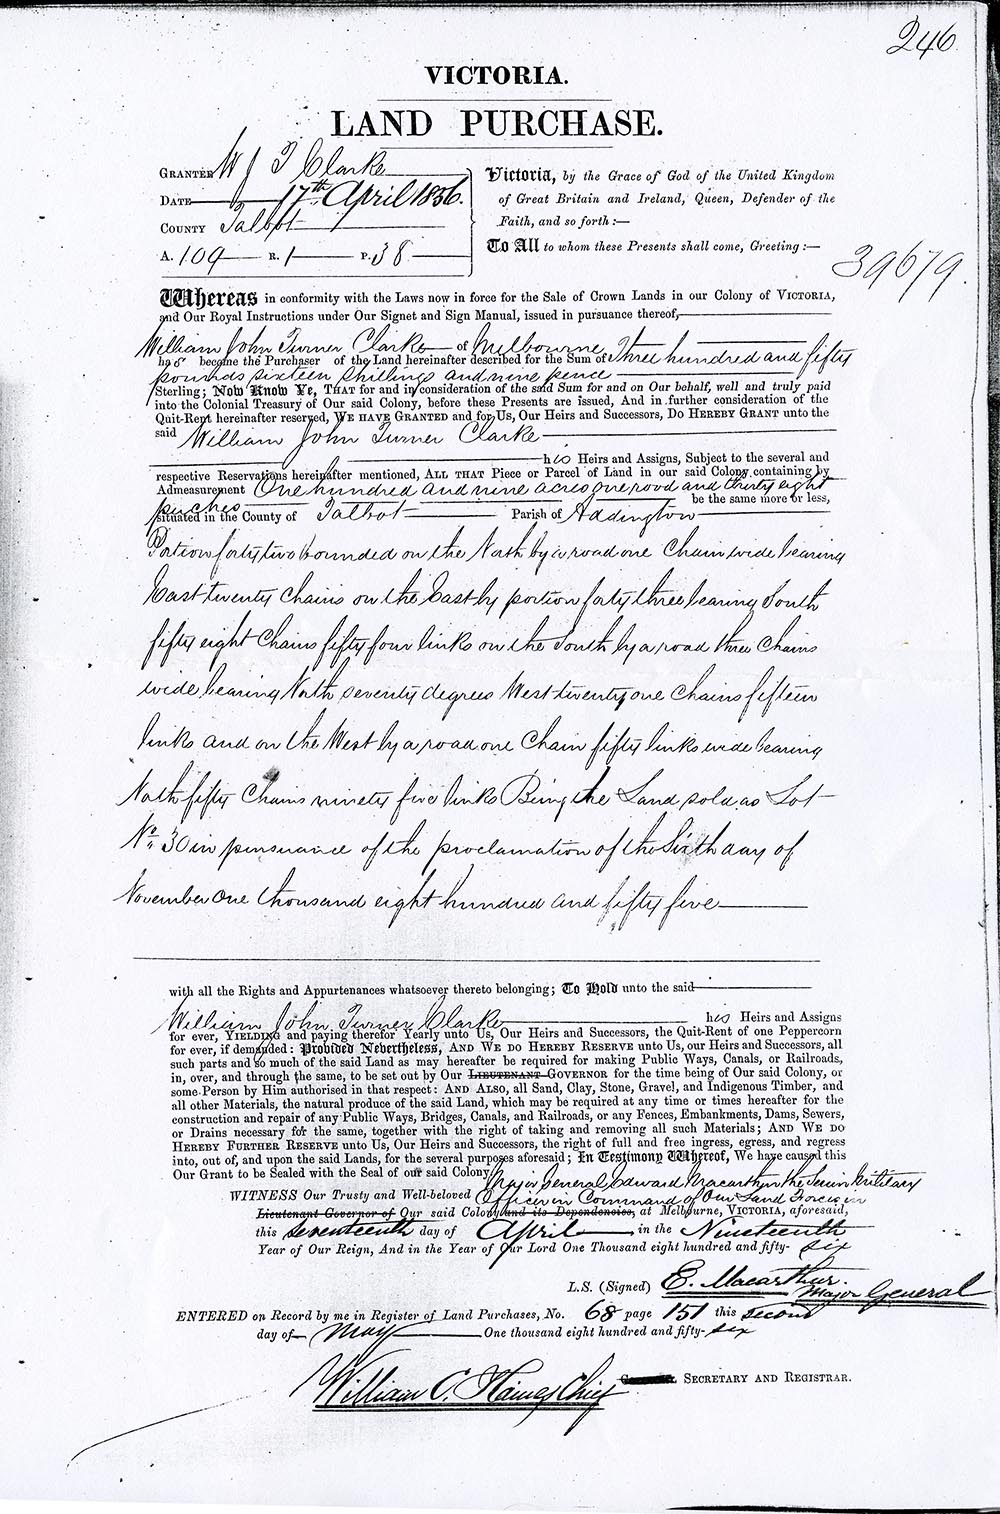 246
VICTORIA.
LAND PURCHASE.
GRANTEE W J T Clarke
DATE 17th April 1856.
COUNTY Talbot
A. 109 R. 1 P. 38
Victoria, by the Grace of God of the United Kingdom
of Great Britain and Ireland, Queen, Defender of the
Faith, and so forth:—
To All to whom these Presents shall come, Greeting:—
39679.
Whereas in conformity with the Laws now in force for the Sale of Crown Lands in our Colony of VICTORIA,
and Our Royal Instructions under Our Signet and Sign Manual, issued in pursuance thereof,
William John Turner Clarke of Melbourne
has become the Purchaser of the Land hereinafter described for the Sum of Three hundred and fifty
pounds sixteen shillings and nine pence
Sterling; Now Know Ye, THAT for and in consideration of the said Sum for and on Our behalf, well and truly paid
into the Colonial Treasury of Our said Colony, before these Presents are issued, And in further consideration of the
Quit-Rent hereinafter reserved, WE HAVE GRANTED and for Us, Our Heirs and Successors, DO HEREBY GRANT unto the
said William John Turner Clarke
his Heirs and Assigns, Subject to the several and
respective Reservations hereinafter mentioned, ALL THAT Piece or Parcel of Land in our said Colony, containing by
Admeasurement One hundred and nine acres one rood and thirty eight
perches be the same more or less,
situated in the County of Talbot Parish of Addington
Portion forty two bounded on the North by a road one Chain wide bearing
East twenty Chains on the East by portion forty three bearing South
fifty eight Chains fifty four links on the South by a road three Chains
wide bearing North seventy degrees West twenty one Chains fifteen
links and on the West by a road one Chain fifty links wide bearing
North fifty Chains ninety five links Being the Land sold as Lot
No. 30 in pursuance of the proclamation of the Sixth day of
November One thousand eight hundred and fifty five
with all the Rights and Appurtenances whatsoever thereto belonging; To Hold unto the said
William John Turner Clarke his Heirs and Assigns
for ever, YIELDING and paying therefor Yearly unto Us, Our Heirs and Successors, the Quit-Rent of one Peppercorn
for ever, if demanded: Provided Nevertheless, AND WE DO HEREBY RESERVE unto Us, our Heirs and Successors, all
such parts and so much of the said Land as may hereafter be required for making Public Ways, Canals, or Railroads,
in, over, and through the same, to be set out by Our LIEUTENANT-GOVERNOR for the time being of Our said Colony, or
some Person by Him authorised in that respect: AND ALSO, all Sand, Clay, Stone, Gravel, and Indigenous Timber, and
all other Materials, the natural produce of the said Land, which may be required at any time or times hereafter for the
construction and repair of any Public Ways, Bridges, Canals, and Railroads, or any Fences, Embankments, Dams, Sewers,
or Drains necessary for the same, together with the right of taking and removing all such Materials; AND WE DO
HEREBY FURTHER RESERVE unto Us, Our Heirs and Successors, the right of full and free ingress, egress, and regress
into, out of, and upon the said Lands, for the several purposes aforesaid; In Testimony Whereof, We have caused this
Our Grant to be Sealed with the Seal of our said Colony.
Major General Edward Macarthur the Senior Military
WITNESS Our Trusty and Well-beloved Officer in Command of Our Land Forces in
Lieutenant-Governor of Our said Colony and its Dependencies, at Melbourne, VICTORIA, aforesaid,
this seventeenth day of April in the Nineteenth
Year of Our Reign, And in the Year of Our Lord One Thousand eight hundred and fifty-six
L.S. (Signed) E. Macarthur.
Major General
ENTERED on Record by me in Register of Land Purchases, No. 68 page 151 this second
day of May One thousand eight hundred and fifty-six
William C. Haines Chief SECRETARY AND REGISTRAR.